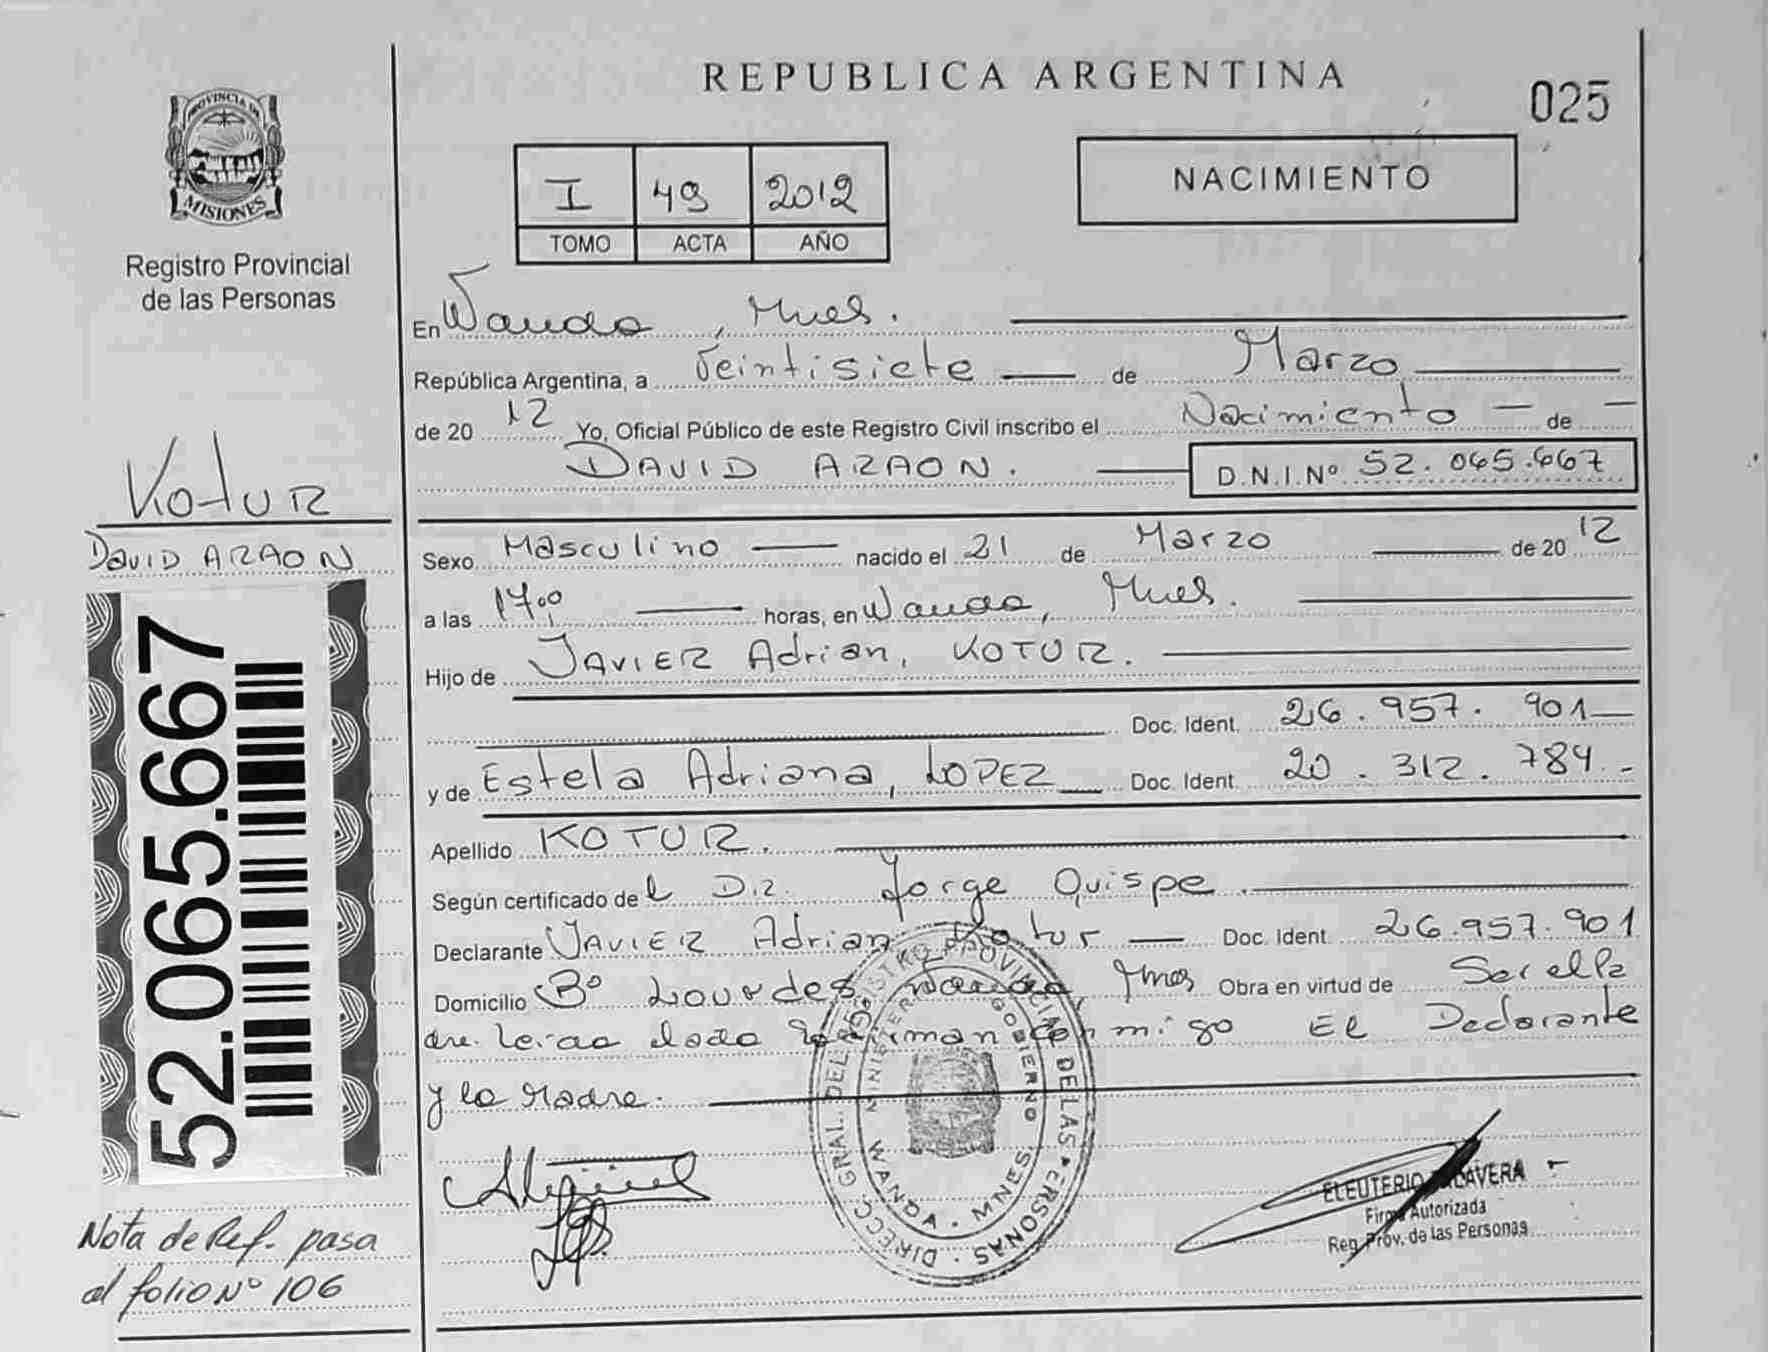 REPUBLICA ARGENTINA
025
PROVINCIA DE
MISIONES
Registro Provincial
de las Personas
I 49 2012
TOMO ACTA AÑO
NACIMIENTO
En Wanda, Mnes.
República Argentina, a Veintisiete de Marzo
de 20 12 Yo, Oficial Público de este Registro Civil inscribo el Nacimiento de
DAVID ARAON. D.N.I.Nº 52.065.667
KOTUR
DAVID ARAON
52.065.667
Sexo Masculino nacido el 21 de Marzo de 20 12
a las 17,00 horas, en Wanda, Mnes.
Hijo de JAVIER Adrian, KOTUR.
Doc. Ident. 26.957.901
y de Estela Adriana, LOPEZ Doc. Ident. 20.312.784.-
Apellido KOTUR.
Según certificado del Dr. Jorge Quispe.
Declarante JAVIER Adrian Kotur Doc. Ident. 26.957.901
Domicilio Bº Lourdes, Wanda, Mnes Obra en virtud de Ser el Pa
dre. Leída el acta la firman conmigo El Declarante
y la Madre.
DIRECC. GRAL. DEL REGISTRO PROVINCIAL DE LAS PERSONAS
MINISTERIO GOBIERNO
WANDA - MNES.
ELEUTERIO
Firma Autorizada
Reg. Prov. de las Personas
Nota de Ref. pasa
al folio Nº 106